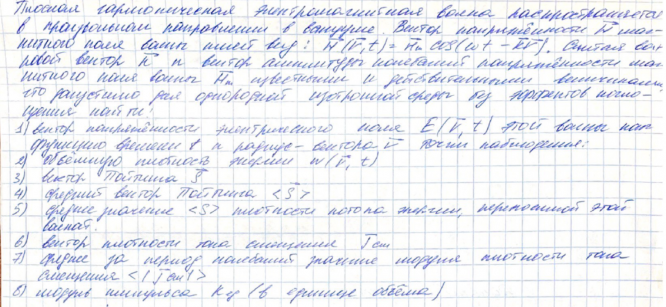 Плоская гармоническая электромагнитная волна распространяется
в произвольном направлении в вакууме. Вектор напряжённости H̄ маг-
нитного поля волны имеет вид: H̄(r̄,t) = H̄m cos(ωt - k̄r̄). Считая вол-
новой вектор k̄ и вектор амплитуды колебаний напряжённости маг-
нитного поля волны H̄m известными и действительными величинами,
что допустимо для однородной изотропной среды без эффектов погло-
щения найти:
1) вектор напряжённости электрического поля E(r̄, t) этой волны как
функцию времени t и радиус-вектора r̄ точки наблюдения:
2) объёмную плотность энергии w(r̄, t)
3) вектор Пойтинга S̄
4) средний вектор Пойтинга <S̄>
5) среднее значение <S> плотности потока энергии, переносимой этой
волной.
6) вектор плотности тока смещения j̄см
7) среднее за период колебаний значение модуля плотности тока
смещения <|j̄см|>
8) модуль импульса Kед (в единице объёма)